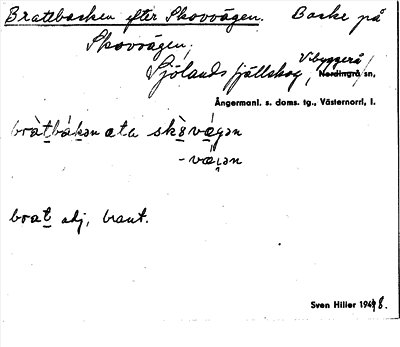 Brattbacken efter Skovvägen. Backe på
Skovvägen,
Själands fjällskog, Vibyggerå
Nordingrå sn,
Ångermanl. s. doms. tg., Västernorrl. l.
bràt̲bák̲ən ata skò̲vǽgən
- vǽi̯ən
brat̲ adj, brant.
Sven Hiller 1948.